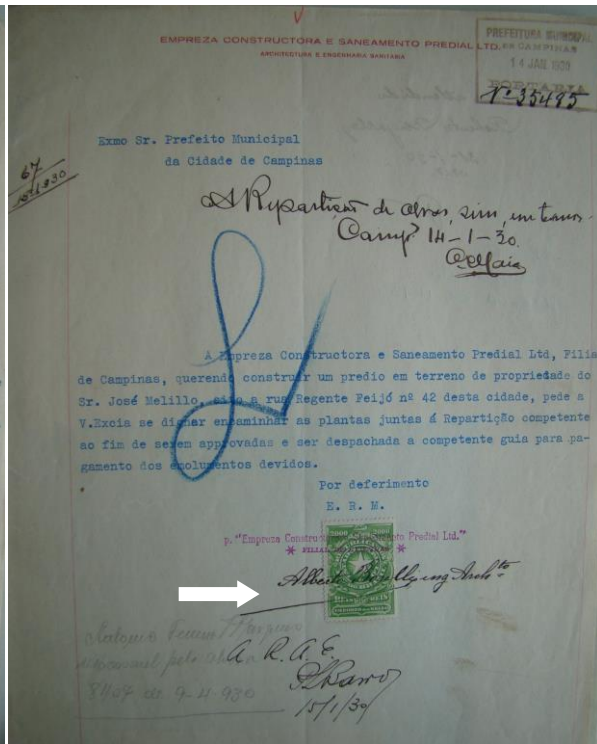 EMPREZA CONSTRUCTORA E SANEAMENTO PREDIAL LTD.
ARCHITECTURA E ENGENHARIA SANITARIA
PREFEITURA MUNICIPAL
DE CAMPINAS
14 JAN 1930
PORTARIA
Nº 35495
Exmo Sr. Prefeito Municipal
da Cidade de Campinas
67
15/1/930
A Repartição de obras, sim, em termos.
Camp. 14-1-30.
A Empreza Constructora e Saneamento Predial Ltd, Filia
de Campinas, querendo construir um predio em terreno de propriedade do
Sr. José Melillo, sito a rua Regente Feijó nº 42 desta cidade, pede a
V.Excia se dignar encaminhar as plantas juntas á Repartição competente
ao fim de serem approvadas e ser despachada a competente guia para pa-
gamento dos emolumentos devidos.
Por deferimento
E. R. M.
p. "Empreza Constructora e Saneamento Predial Ltd."
FILIAL
2000 2000
REIS REIS
Alberto eng Archto
Antonio
responsavel pela
8407 de 9-4-930
A. R. A. E.
15/1/30